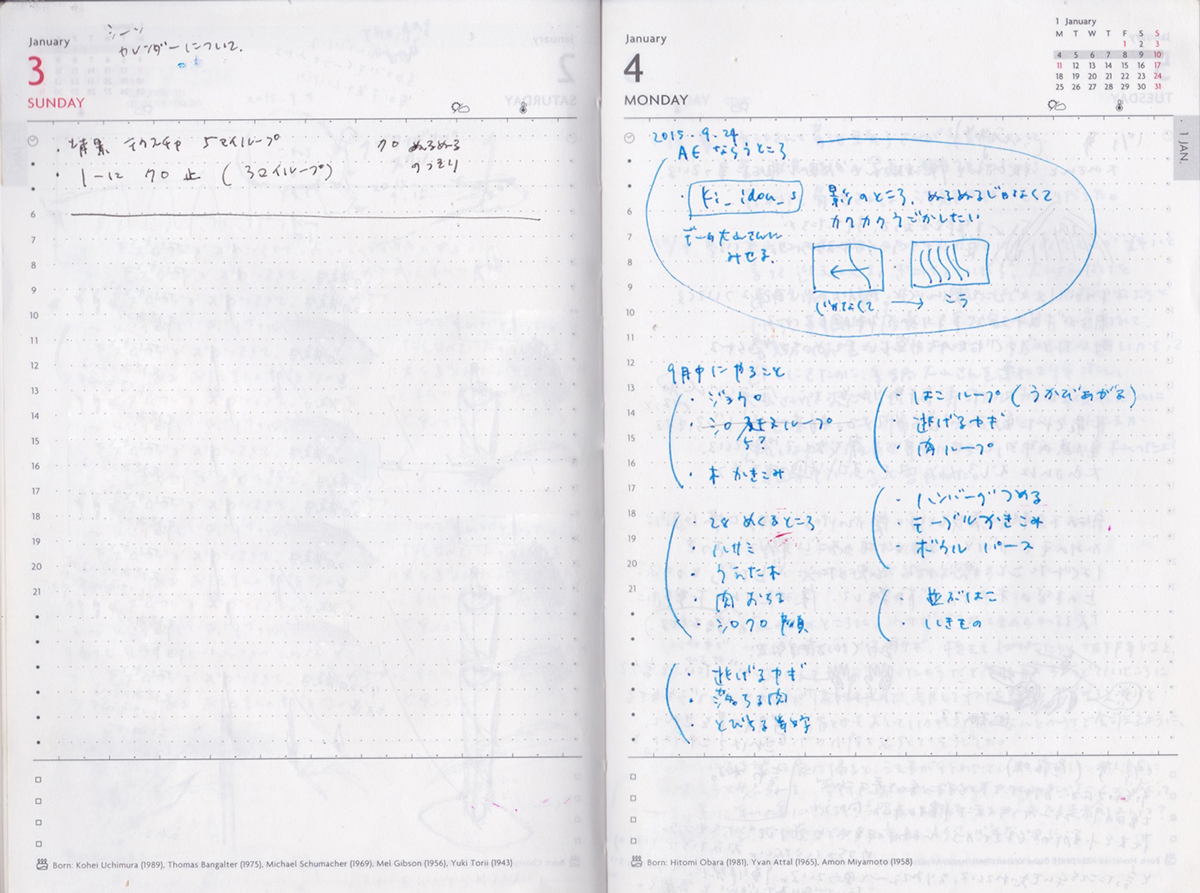 January
3
SUNDAY
シーン
カレンダーについて.
・背景 テクスチャ 5マイループ
クロ ぬるぬる
のっそり
・1-に クロ 止 (3マイループ)
6
7
8
9
10
11
12
13
14
15
16
17
18
19
20
21
Born: Kohei Uchimura (1989), Thomas Bangalter (1975), Michael Schumacher (1969), Mel Gibson (1956), Yuki Torii (1943)
January
4
MONDAY
1 January
M T W T F S S
1 2 3
4 5 6 7 8 9 10
11 12 13 14 15 16 17
18 19 20 21 22 23 24
25 26 27 28 29 30 31
1 JAN.
2015.9.24
AE ならうところ
・ki_idou_s
影のところ、ぬるぬるじゃなくて
カクカクうごかしたい
データ大山さんに
みせる.
じゃなくて → こう
6
7
8
9
10
11
12
13
14
15
16
17
18
19
20
21
9月中にやること
・ジョウロ
・シロ ループ
5?
・木 かきこみ
・28 めくるところ
・ハサミ
・うえた木
・肉おちる
・シロクロ 顔
・逃げるヤギ
・落ちる肉
・とびちる
・はこ ループ (うかびあがる)
・逃げるヤギ
・肉ループ
・ハンバーグつめる
・テーブルかきこみ
・ボウル パース
・並ぶはこ
・いきもの
Born: Hitomi Obara (1981), Yvan Attal (1965), Amon Miyamoto (1958)